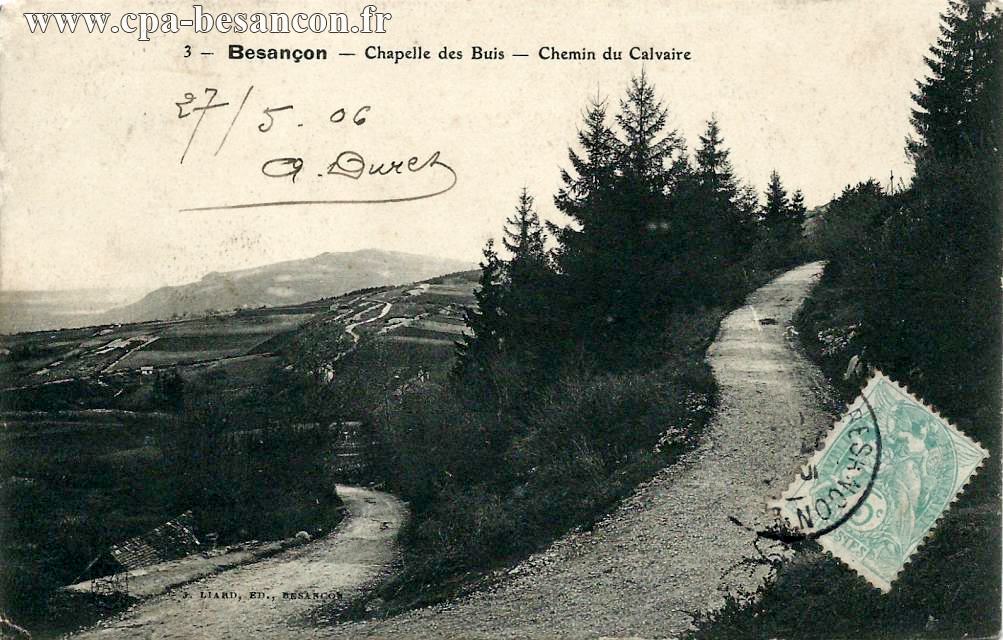 www.cpa-besancon.fr
3 — Besançon — Chapelle des Buis — Chemin du Calvaire
27/5. 06
J. LIARD, ED., BESANCON
BESANCON
5